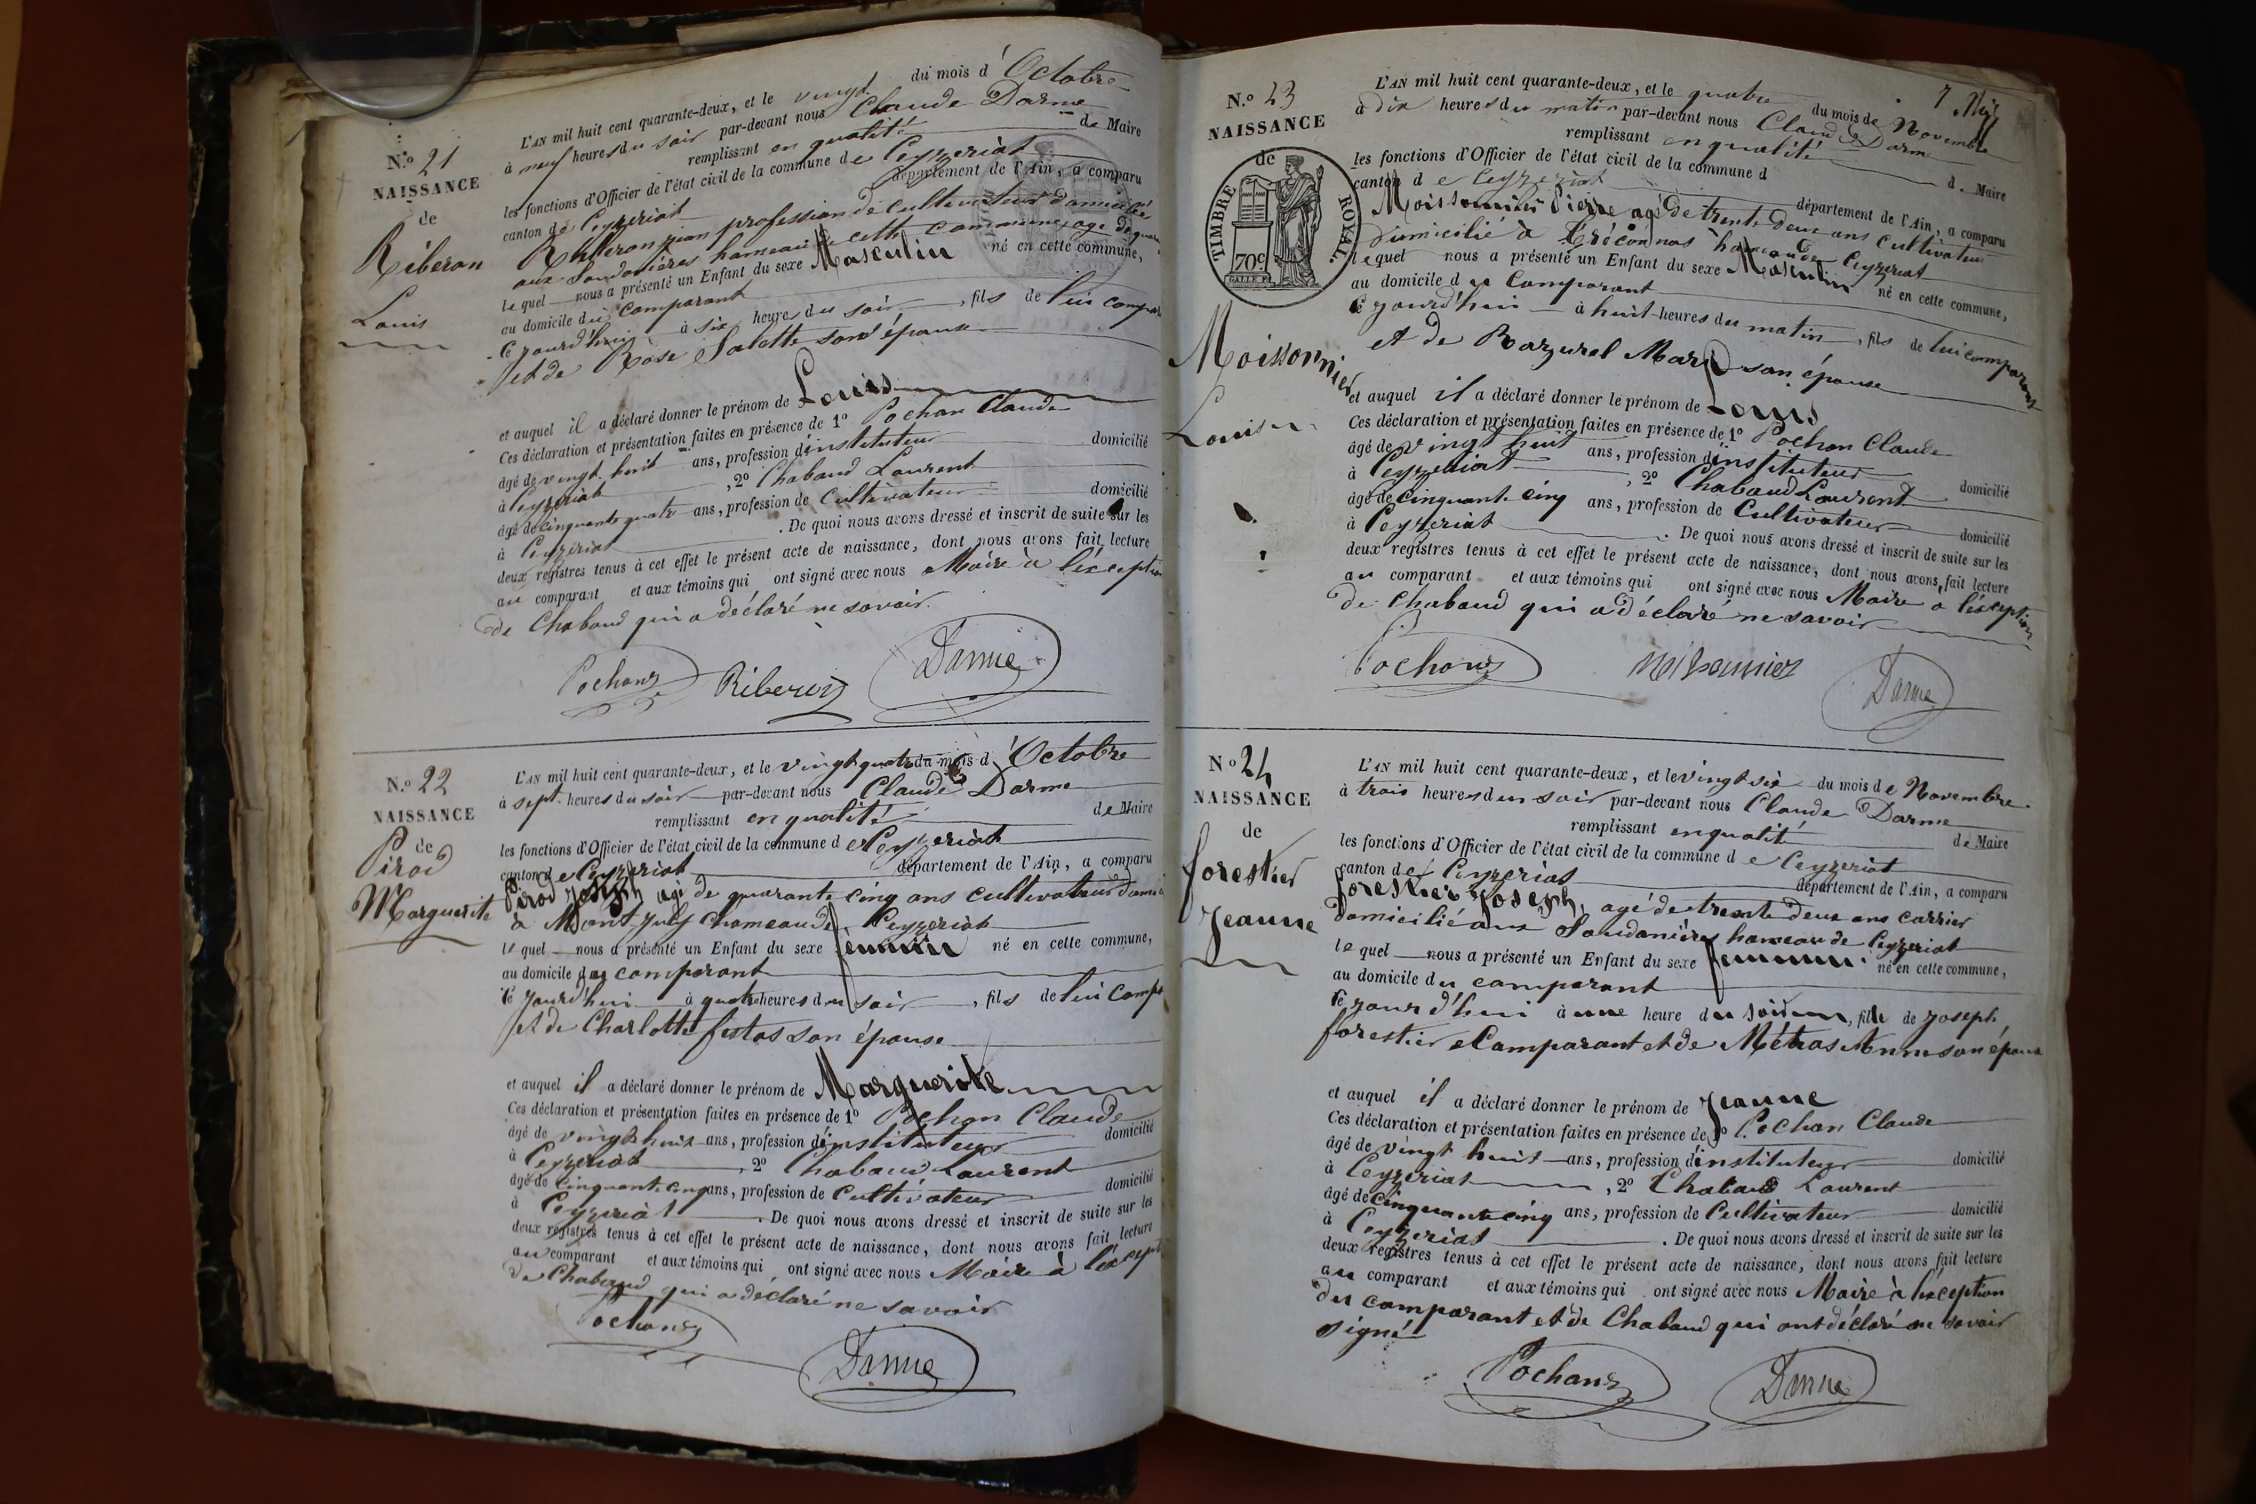 N.º 21
NAISSANCE
de
Riberon
Louis
L'AN mil huit cent quarante-deux, et le vingt du mois d'Octobre
à neuf heures du soir par-devant nous Claude Darme
remplissant en qualité de Maire
les fonctions d'Officier de l'état civil de la commune de Ceyzeriat
canton de Ceyzeriat département de l'Ain, a comparu
Riberon jean profession de cultivateur domicilié
aux Soudanières hameau de cette commune, agé de
le quel nous a présenté un Enfant du sexe Masculin né en cette commune,
au domicile du comparant
ce jourd'hui à six heures du soir, fils de lui compar
et de Rose Salette son épouse
et auquel il a déclaré donner le prénom de Louis
Ces déclaration et présentation faites en présence de 1º Pochon Claude
âgé de vingt huit ans, profession d'instituteur domicilié
à Ceyzeriat, 2º Chabaud Laurent
âgé de cinquante quatre ans, profession de Cultivateur domicilié
à Ceyzeriat. De quoi nous avons dressé et inscrit de suite sur les
deux registres tenus à cet effet le présent acte de naissance, dont nous avons fait lecture
au comparant et aux témoins qui ont signé avec nous Maire à l'exception
de Chabaud qui a déclaré ne savoir.
Pochon Riberon Darme
N.º 22
NAISSANCE
de
Pirod
Marguerite
L'AN mil huit cent quarante-deux, et le vingt quatre du mois d'Octobre
à sept heures du soir par-devant nous Claude Darme
remplissant en qualité de Maire
les fonctions d'Officier de l'état civil de la commune de Ceyzeriat
canton de Ceyzeriat département de l'Ain, a comparu
Pirod Joseph agé de quarante cinq ans cultivateur domi
à Mont July hameau de Ceyzeriat
le quel nous a présenté un Enfant du sexe féminin né en cette commune,
au domicile du comparant
ce jourd'hui à quatre heures du soir, fils de lui comp
et de Charlotte festas son épouse
et auquel il a déclaré donner le prénom de Marguerite
Ces déclaration et présentation faites en présence de 1º Pochon Claude
âgé de vingt huit ans, profession d'instituteur domicilié
à Ceyzeriat, 2º Chabaud Laurent
âgé de cinquante cinq ans, profession de Cultivateur domicilié
à Ceyzeriat. De quoi nous avons dressé et inscrit de suite sur les
deux registres tenus à cet effet le présent acte de naissance, dont nous avons fait lecture
au comparant et aux témoins qui ont signé avec nous Maire à l'except
de Chabaud qui a déclaré ne savoir
Pochon Darme
7
N.º 23
NAISSANCE
de
TIMBRE ROYAL.
70c
Moissonnier
Louis
L'AN mil huit cent quarante-deux, et le quatre du mois de Novembre
à dix heures du matin par-devant nous Claude Darme
remplissant en qualité de Maire
les fonctions d'Officier de l'état civil de la commune d
canton de Ceyzeriat département de l'Ain, a comparu
Moissonnier Pierre agé de trente deux ans cultivateur
domicilié à hameau de Ceyzeriat
lequel nous a présenté un Enfant du sexe Masculin né en cette commune,
au domicile du Comparant
ce jourd'hui à huit heures du matin, fils de lui comparant
et de Marie son épouse
et auquel il a déclaré donner le prénom de Louis
Ces déclaration et présentation faites en présence de 1º Pochon Claude
âgé de vingt huit ans, profession d'instituteur domicilié
à Ceyzeriat, 2º Chabaud Laurent
âgé de cinquante cinq ans, profession de Cultivateur domicilié
à Ceyzeriat. De quoi nous avons dressé et inscrit de suite sur les
deux registres tenus à cet effet le présent acte de naissance, dont nous avons fait lecture
au comparant et aux témoins qui ont signé avec nous Maire à l'exception
de Chabaud qui a déclaré ne savoir
Pochon Darme
Nº 24
NAISSANCE
de
forestier
Jeanne
L'AN mil huit cent quarante-deux, et le vingt six du mois de Novembre
à trois heures du soir par-devant nous Claude Darme
remplissant en qualité de Maire
les fonctions d'Officier de l'état civil de la commune de Ceyzeriat
canton de Ceyzeriat département de l'Ain, a comparu
forestier Joseph, agé de trente deux ans carrier
domicilié aux Soudanières hameau de Ceyzeriat
le quel nous a présenté un Enfant du sexe féminin né en cette commune,
au domicile du comparant
ce jour d'hui à une heure du soir, fille de Joseph
forestier Comparant et de Métras Anne son épouse
et auquel il a déclaré donner le prénom de Jeanne
Ces déclaration et présentation faites en présence de 1º Pochon Claude
âgé de vingt huit ans, profession d'instituteur domicilié
à Ceyzeriat, 2º Chabaud Laurent
âgé de cinquante cinq ans, profession de Cultivateur domicilié
à Ceyzeriat. De quoi nous avons dressé et inscrit de suite sur les
deux registres tenus à cet effet le présent acte de naissance, dont nous avons fait lecture
au comparant et aux témoins qui ont signé avec nous Maire à l'exception
du comparant et de Chabaud qui ont déclaré ne savoir
signé
Pochon Darme